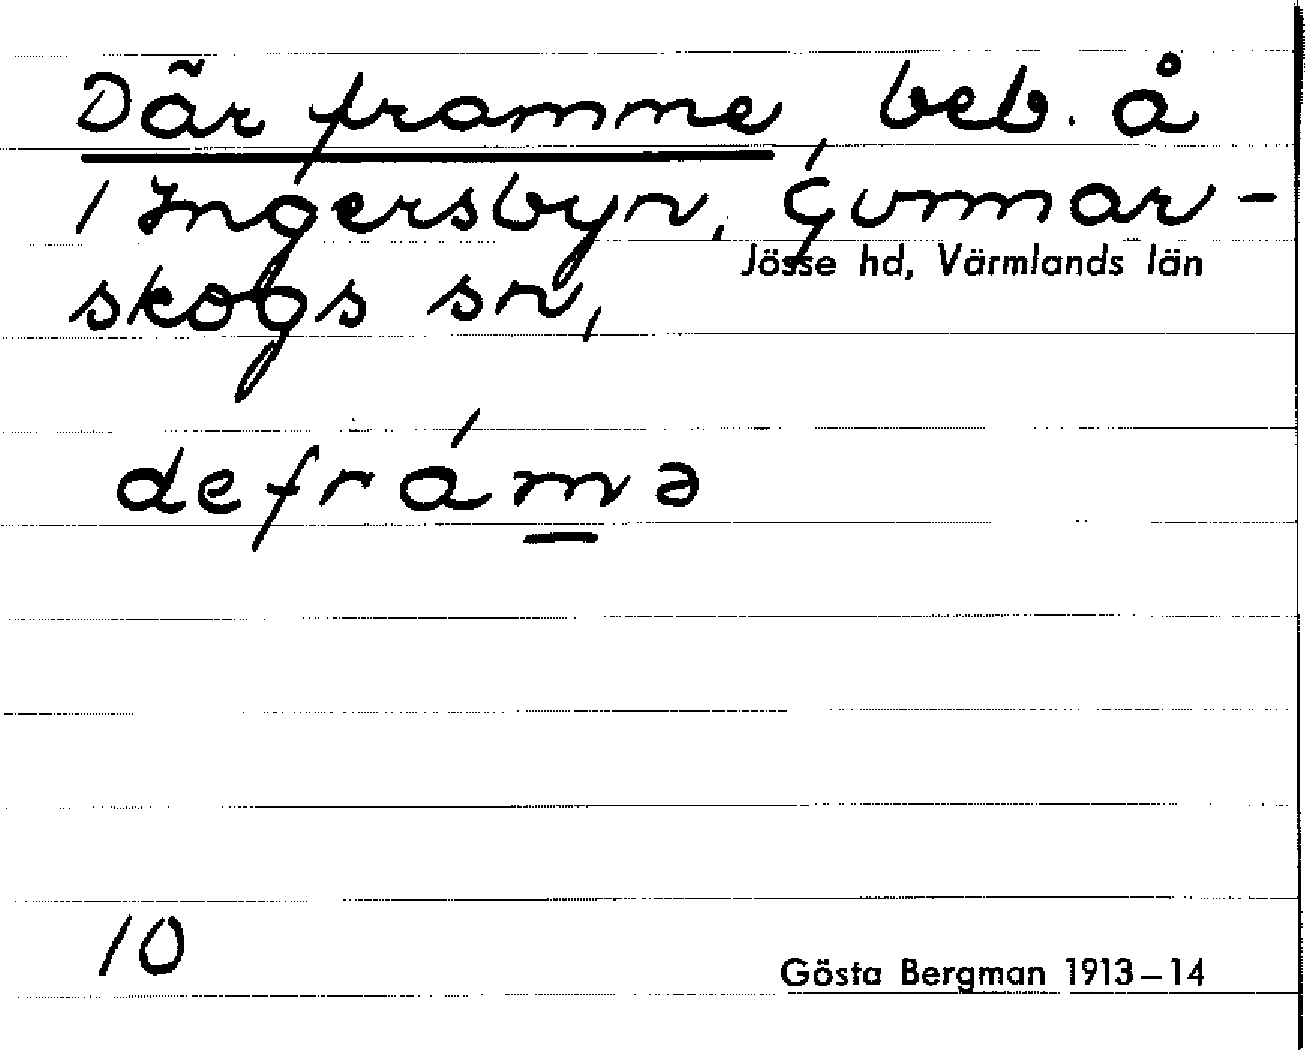 Där framme, beb. å
1 Ingersbyn, Gunnar-
Jösse hd, Värmlands län
skogs sn,
defrámə
10
Gösta Bergman 1913–14